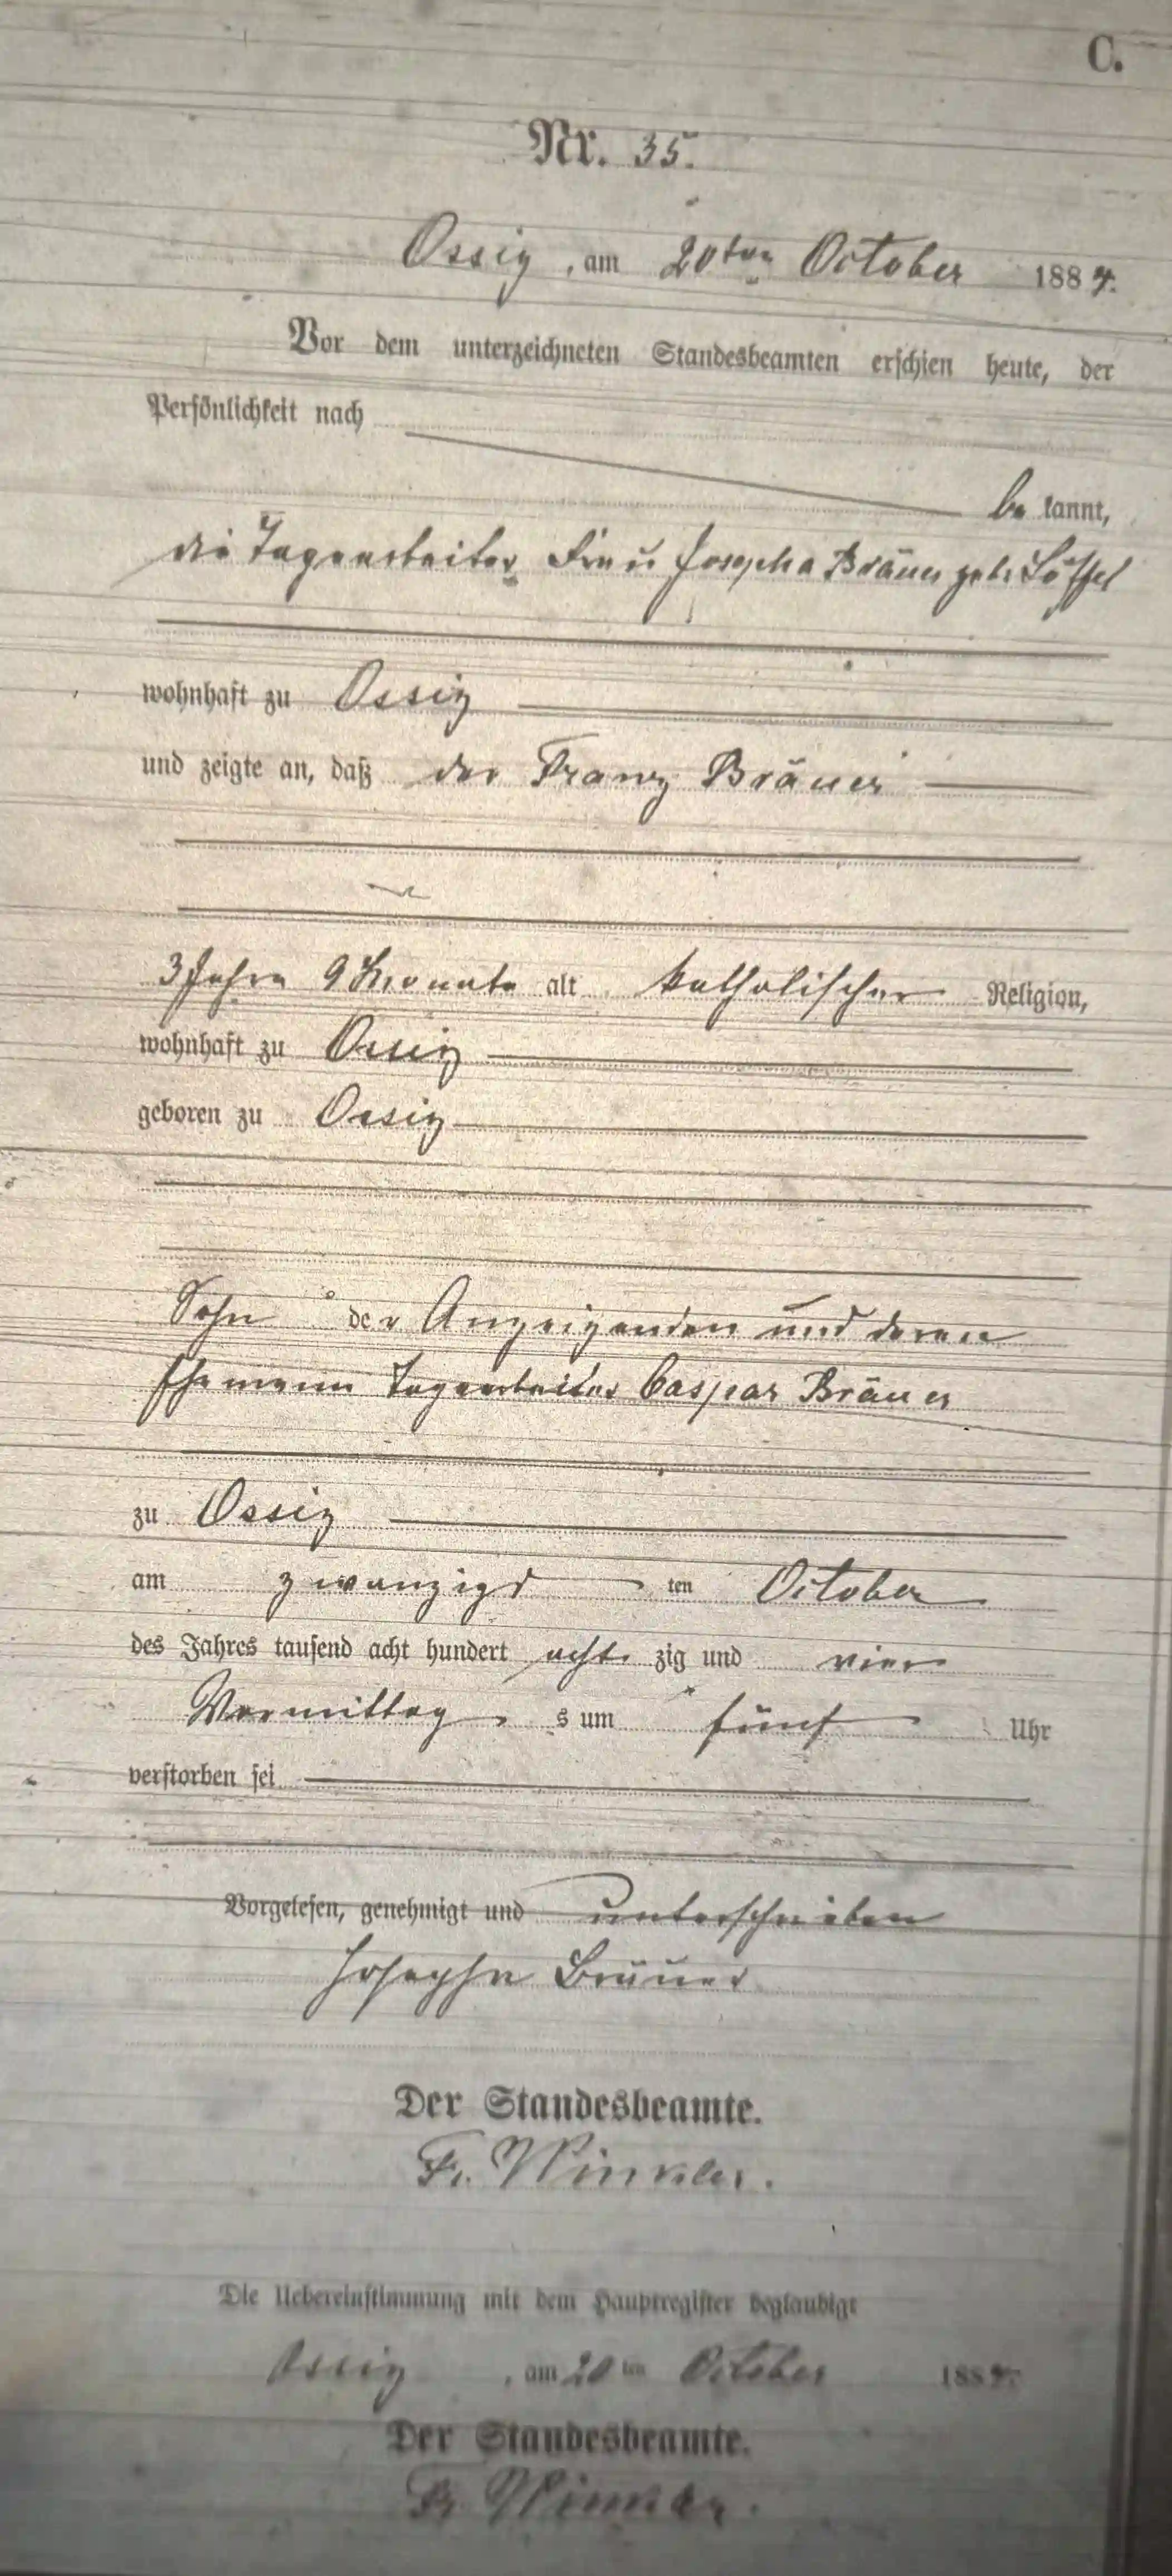 C.
Nr. 35.
Ossig, am 20ten October 1884.
Vor dem unterzeichneten Standesbeamten erschien heute, der
Persönlichkeit nach
be kannt,
die Tagearbeiter Frau Josepha Bräuer geb. Löffel
wohnhaft zu Ossig
und zeigte an, daß der Franz Bräuer
3 Jahre 9 Monate alt katholischer Religion,
wohnhaft zu Ossig
geboren zu Ossig
Sohn der Anzeigenden und deren
Ehemann Tagearbeiter Caspar Bräuer
zu Ossig
am zwanzigs ten October
des Jahres tausend acht hundert acht zig und vier
Vormittag s um fünf Uhr
verstorben sei
Vorgelesen, genehmigt und unterschrieben
Josepha Bräuer
Der Standesbeamte.
Fr. Winkler.
Die Uebereinstimmung mit dem Hauptregister beglaubigt
Ossig, am 20ten October 1884.
Der Standesbeamte.
Fr. Winkler.